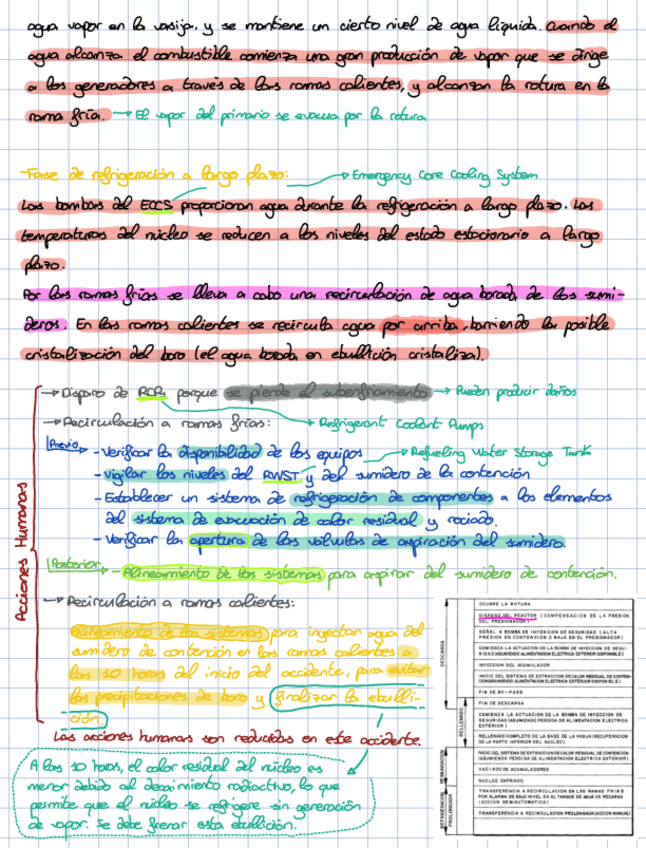 agua vapor en la vasija, y se mantiene un cierto nivel de agua líquida. Cuando el
agua alcanza el combustible comienza una gran producción de vapor que se dirige
a los generadores a través de las ramas calientes, y alcanzan la rotura en la
rama fría. → El vapor del primario se evacua por la rotura
-Fase de refrigeración a largo plazo: → Emergency Core Cooling System
Las bombas del ECCS proporcionan agua durante la refrigeración a largo plazo. Las
temperaturas del núcleo se reducen a los niveles del estado estacionario a largo
plazo.
Por las ramas frías se lleva a cabo una recirculación de agua borada de los sumi-
deros. En las ramas calientes se recircula agua por arriba, barriendo la posible
cristalización del boro (el agua borada en ebullición cristaliza).
Acciones Humanas
→ Disparo de RCPs porque se pierde el subenfriamiento → Pueden producir daños
→ Recirculación a ramas frías: → Refrigerant Coolant Pumps
Previo → - Verificar la disponibilidad de los equipos → Refueling Water Storage Tank
- Vigilar los niveles del RWST y del sumidero de la contención
- Establecer un sistema de refrigeración de componentes a los elementos
del sistema de evacuación de calor residual y rociado.
- Verificar la apertura de las válvulas de aspiración del sumidero.
Posterior → - Alineamiento de los sistemas para aspirar del sumidero de contención.
→ Recirculación a ramas calientes:
Alineamiento de los sistemas para inyectar agua del
sumidero de contención en las ramas calientes a
las 10 horas del inicio del accidente, para evitar
las precipitaciones de boro y finalizar la ebulli-
ción
Las acciones humanas son reducidas en este accidente.
A las 10 horas, el calor residual del núcleo es
menor debido al decaimiento radiactivo, lo que
permite que el núcleo se refrigere sin generación
de vapor. Se debe frenar esta ebullición.
DESCARGA
OCURRE LA ROTURA
DISPARO DEL REACTOR (COMPENSACION DE LA PRESION
DEL PRESIONADOR)
SEÑAL A BOMBA DE INYECCION DE SEGURIDAD (ALTA
PRESION EN CONTENCION O BAJA EN EL PRESIONADOR)
COMIENZA LA ACTUACION DE LA BOMBA DE INYECCION DE SEGU-
RIDAD (ASUMIENDO ALIMENTACION ELECTRICA EXTERIOR DISPONIBLE)
INYECCION DEL ACUMULADOR
INICIO DEL SISTEMA DE EXTRACCION DE CALOR RESIDUAL DE CONTEN-
CION (ASUMIENDO ALIMENTACION ELECTRICA EXTERIOR DISPONIBLE)
FIN DE BY-PASS
FIN DE DESCARGA
RELLENADO
COMIENZA LA ACTUACION DE LA BOMBA DE INYECCION DE
SEGURIDAD (ASUMIENDO PERDIDA DE ALIMENTACION ELECTRICA
EXTERIOR)
RELLENADO COMPLETO DE LA BASE DE LA VASIJA (RECUPERACION
DE LA PARTE INFERIOR DEL NUCLEO)
INICIO DEL SISTEMA DE EXTRACCION DE CALOR RESIDUAL DE CONTENCION
(ASUMIENDO PERDIDA DE ALIMENTACION ELECTRICA EXTERIOR)
VACIADO DE ACUMULADORES
NUCLEO ENFRIADO
REFRIGERACION
PROLONGADA
TRANSFERENCIA A RECIRCULACION EN LAS RAMAS FRIAS
POR ALARMA DE BAJO NIVEL EN EL TANQUE DE AGUA DE RECARGA
(ACCION SEMIAUTOMATICA)
TRANSFERENCIA A RECIRCULACION PROLONGADA (ACCION MANUAL)